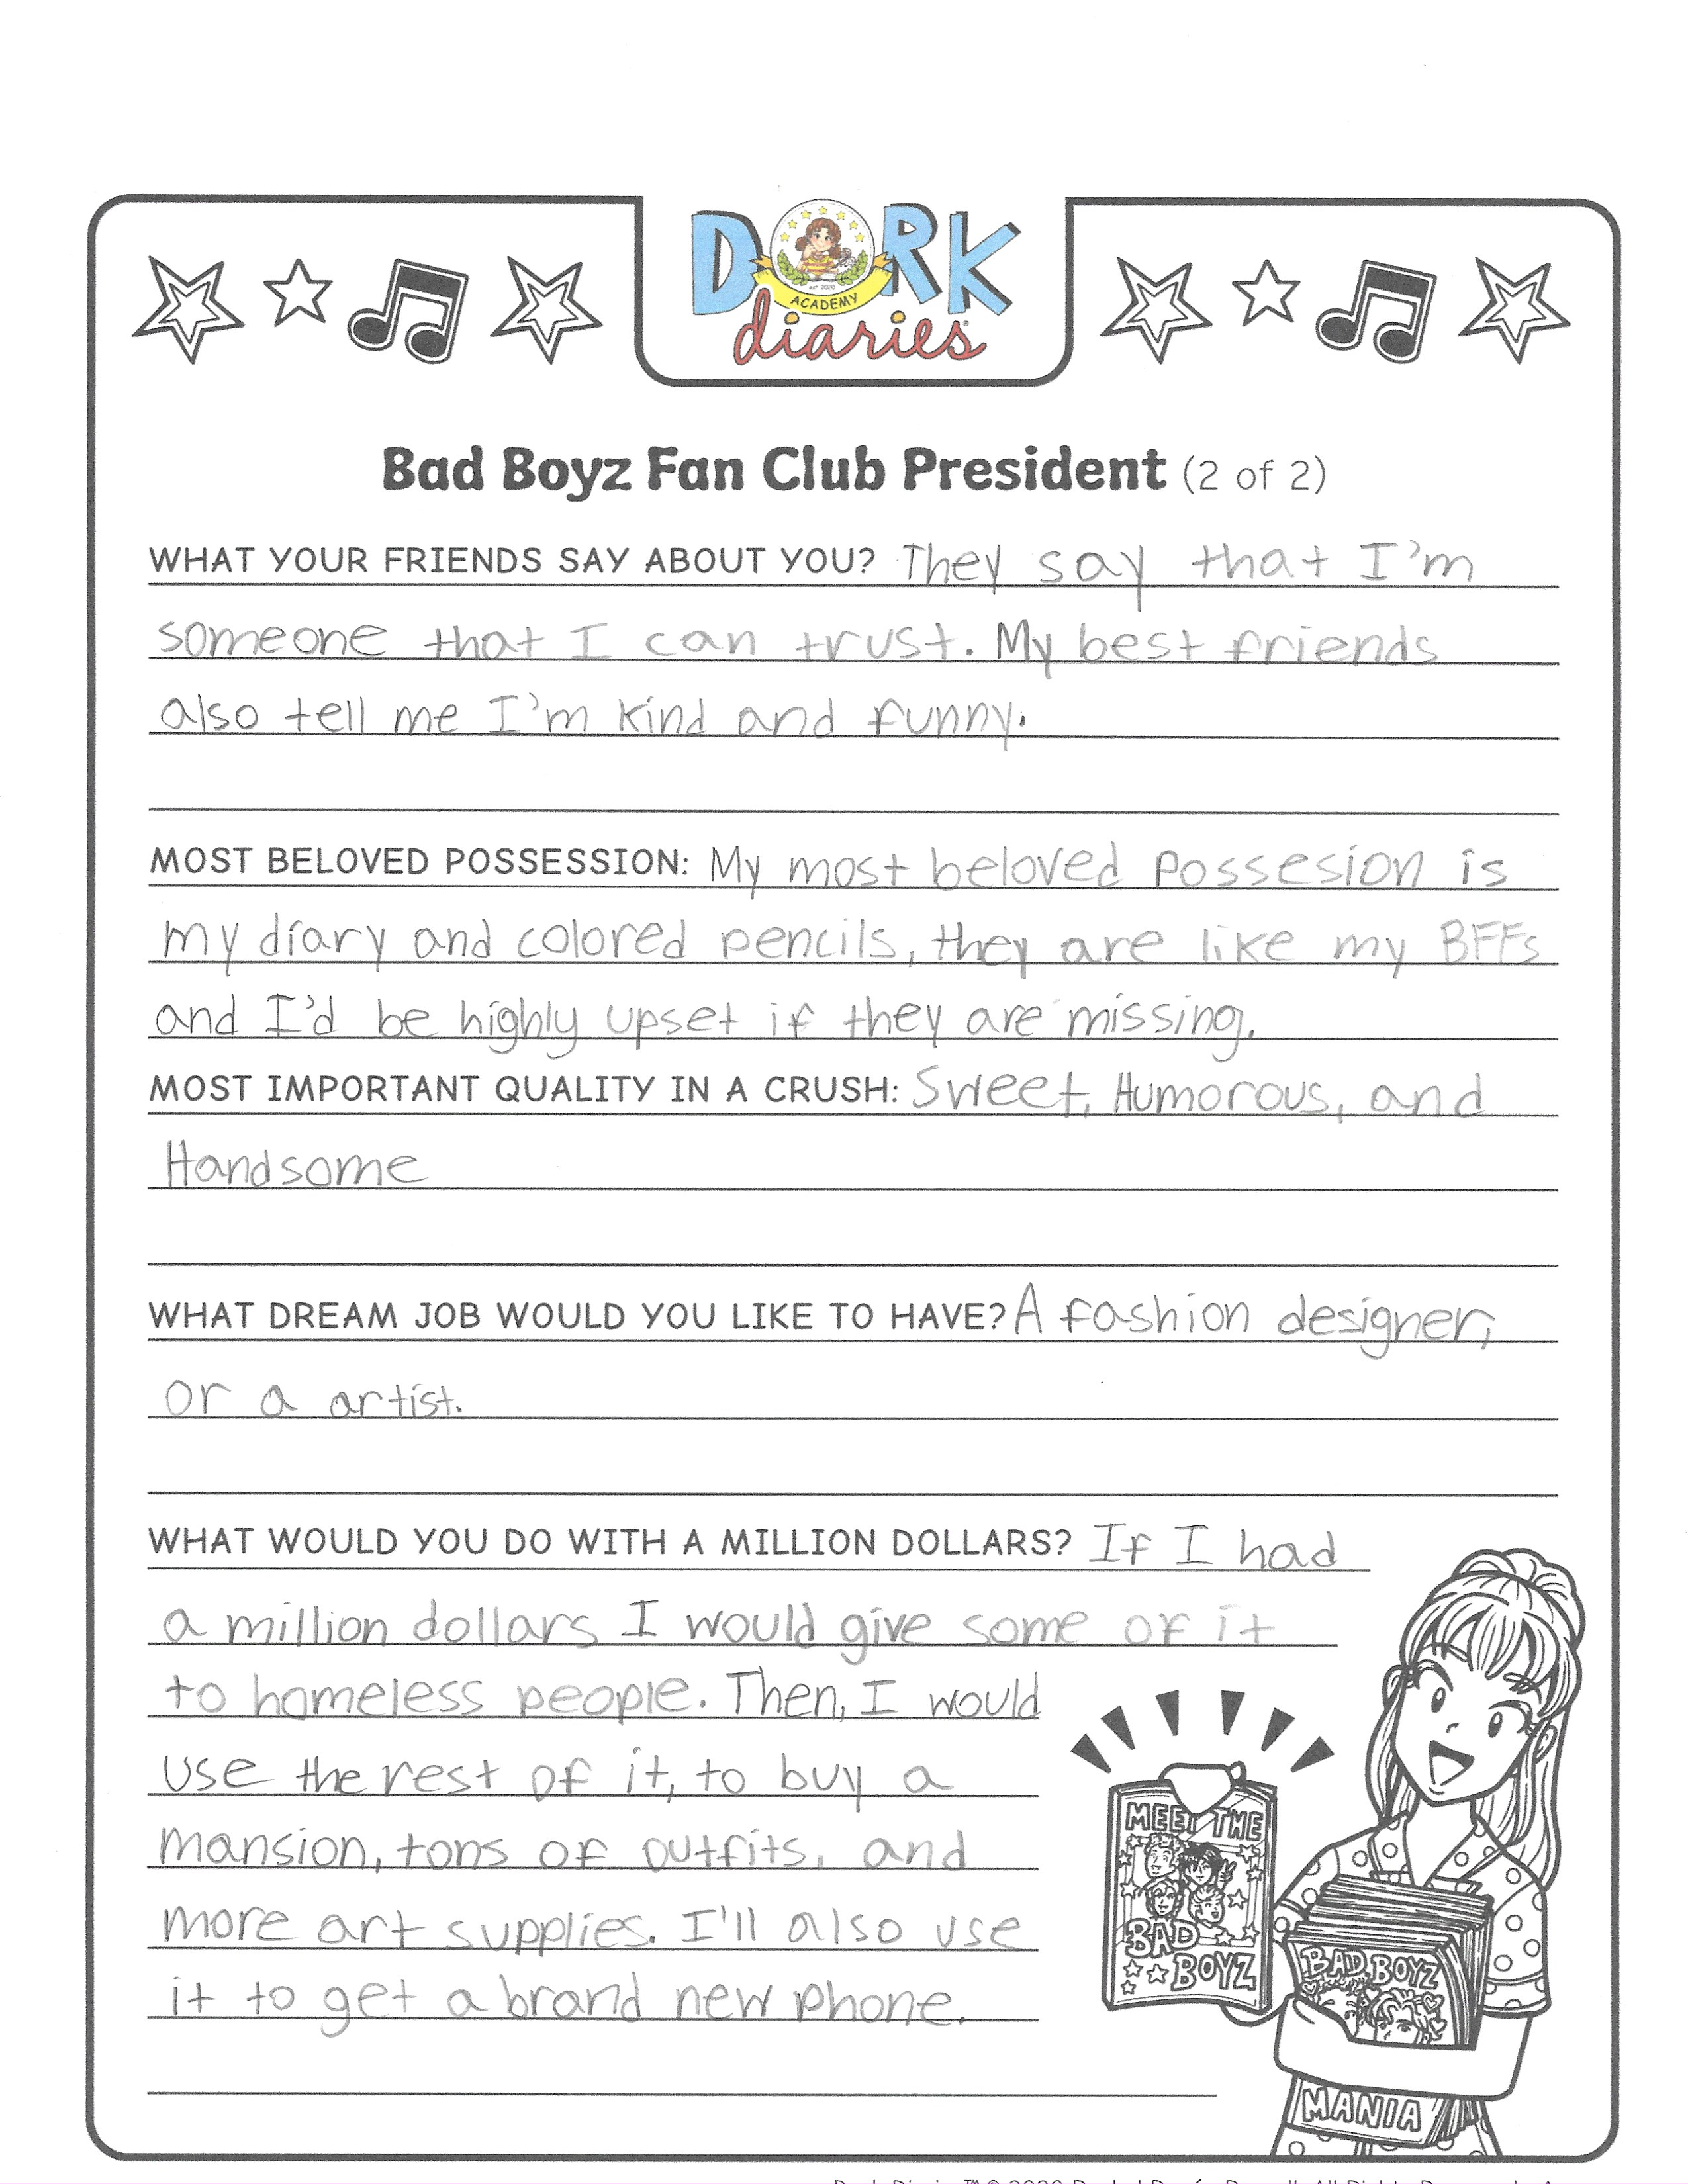 DORK
est 2020
ACADEMY
diaries
Bad Boyz Fan Club President (2 of 2)
WHAT YOUR FRIENDS SAY ABOUT YOU? They say that I'm
someone that I can trust. My best friends
also tell me I'm kind and funny.
MOST BELOVED POSSESSION: My most beloved possesion is
my diary and colored pencils, they are like my BFFs
and I'd be highly upset if they are missing.
MOST IMPORTANT QUALITY IN A CRUSH: Sweet, Humorous, and
Handsome
WHAT DREAM JOB WOULD YOU LIKE TO HAVE? A fashion designer,
or a artist.
WHAT WOULD YOU DO WITH A MILLION DOLLARS? If I had
a million dollars I would give some of it
to homeless people. Then, I would
use the rest of it, to buy a
mansion, tons of outfits, and
more art supplies. I'll also use
it to get a brand new phone.
MEET THE
BAD
BOYZ
BAD BOYZ
MANIA